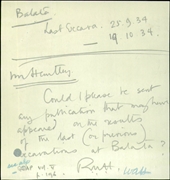 Balata
Last Excava. 25.9.34
— 19.10.34.
Mr Hamilton,
Could I please be sent
any publication that may have
appeared on the results
of the last (or previous)
excavations at Balata?